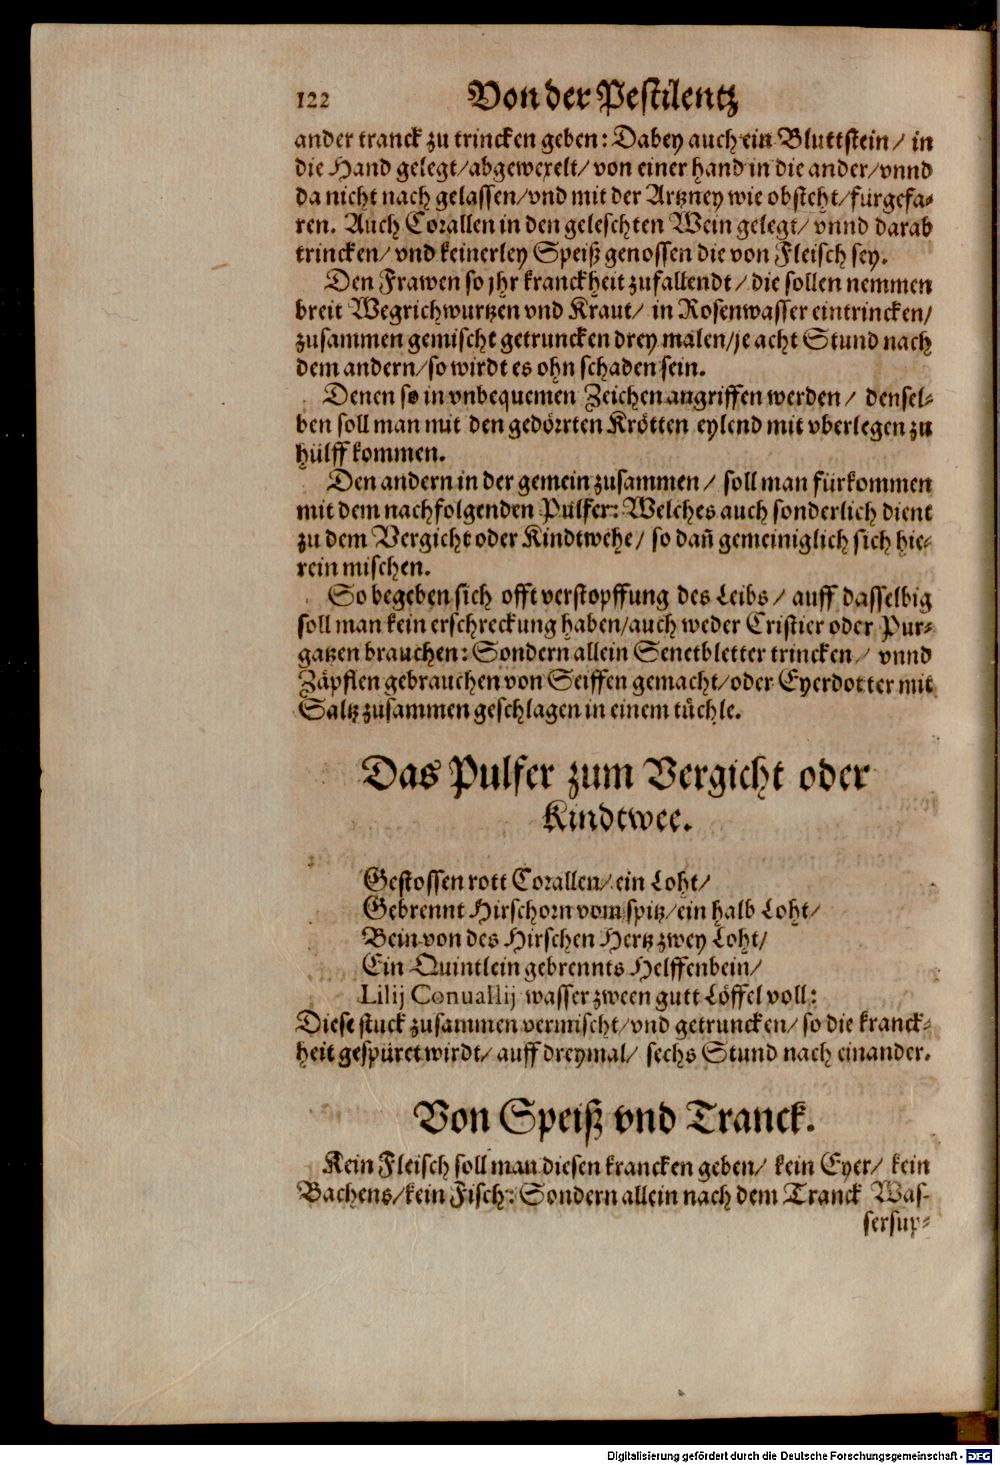 122 Von der Pestilentz
ander tranck zu trincken geben: Dabey auch ein Bluttstein/ in
die Hand gelegt/ abgewexelt/ von einer hand in die ander/ vnnd
da nicht nach gelassen/ vnd mit der Artzney wie obsteht/ fürgefa-
ren. Auch Corallen in den geleschten Wein gelegt/ vnnd darab
trincken/ vnd keinerley Speiß genossen die von Fleisch sey.
Den Frawen so jhr kranckheit zufallendt/ die sollen nemmen
breit Wegrichwurtzen vnd Kraut/ in Rosenwasser eintrincken/
zusammen gemischt getruncken drey malen/ je acht Stund nach
dem andern/ so wirdt es ohn schaden sein.
Denen so in vnbequemen Zeichen angriffen werden/ densel-
ben soll man mit den gedörrten Krötten eylend mit vberlegen zu
hülff kommen.
Den andern in der gemein zusammen/ soll man fürkommen
mit dem nachfolgenden Pulfer: Welches auch sonderlich dient
zu dem Vergicht oder Kindtwehe/ so dañ gemeiniglich sich hie-
rein mischen.
So begeben sich offt verstopffung des Leibs/ auff dasselbig
soll man kein erschreckung haben/ auch weder Cristier oder Pur-
gatzen brauchen: Sondern allein Senetbletter trincken/ vnnd
Zäpflen gebrauchen von Seiffen gemacht/ oder Eyerdotter mit
Saltz zusammen geschlagen in einem tüchle.
Das Pulfer zum Vergicht oder
Kindtwee.
Gestossen rott Corallen/ ein Loht/
Gebrennt Hirschorn vom spitz/ ein halb Loht/
Bein von des Hirschen Hertz zwey Loht/
Ein Quintlein gebrennts Helffenbein/
Lilij Conuallij wasser zween gutt Löffel voll:
Diese stuck zusammen vermischt/ vnd getruncken/ so die kranck-
heit gespüret wirdt/ auff dreymal/ sechs Stund nach einander.
Von Speiß vnd Tranck.
Kein Fleisch soll man diesen krancken geben/ kein Eyer/ kein
Bachens/ kein Fisch: Sondern allein nach dem Tranck Was-
sersup-
Digitalisierung gefördert durch die Deutsche Forschungsgemeinschaft - DFG